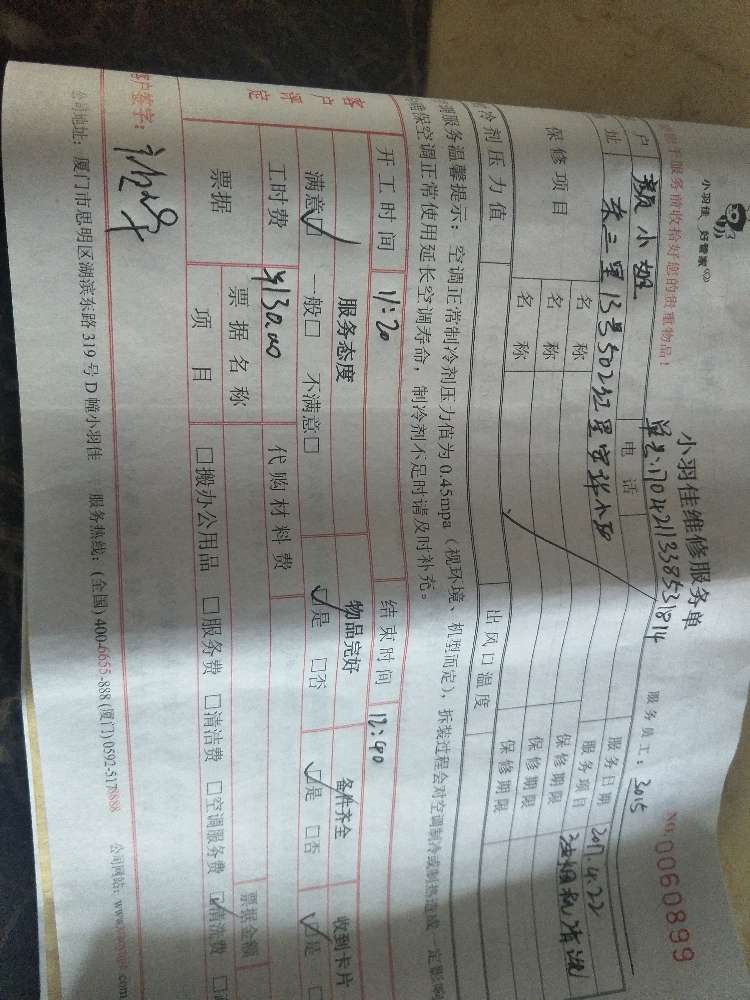 小羽佳 好管家
小羽佳维修服务单
NO.0060899
单号:1704211338531814
服务员工: 3015
服务前收拾好您的贵重物品!
户 颜小姐 电话 服务日期 2017.4.22
址 东二里13号502红星 服务项目 油烟机清洗
保修项目 名称 保修期限
名称 保修期限
名称 保修期限
冷剂压力值 出风口温度
服务温馨提示: 空调正常制冷剂压力值为0.45mpa (视环境、机型而定), 拆装过程会对空调制冷或制热造成一定影响
确保空调正常使用延长空调寿命, 制冷剂不足时请及时补充。
客户评定
开工时间 11:20 结束时间 12:40
服务态度 物品完好 备件齐全 收到卡片
满意☑ 一般□ 不满意□ ☑是 □否 ☑是 □否 ☑是
工时费 ¥130.00 代购材料费
票据 票据名称 票据金额
项目 □搬办公用品 □服务费 □清洁费 □空调服务费 ☑清洗费
客户签字:
公司地址: 厦门市思明区湖滨东路319号D幢小羽佳 服务热线: (全国) 400-6655-888 (厦门) 0592-5178888 公司网站: www.